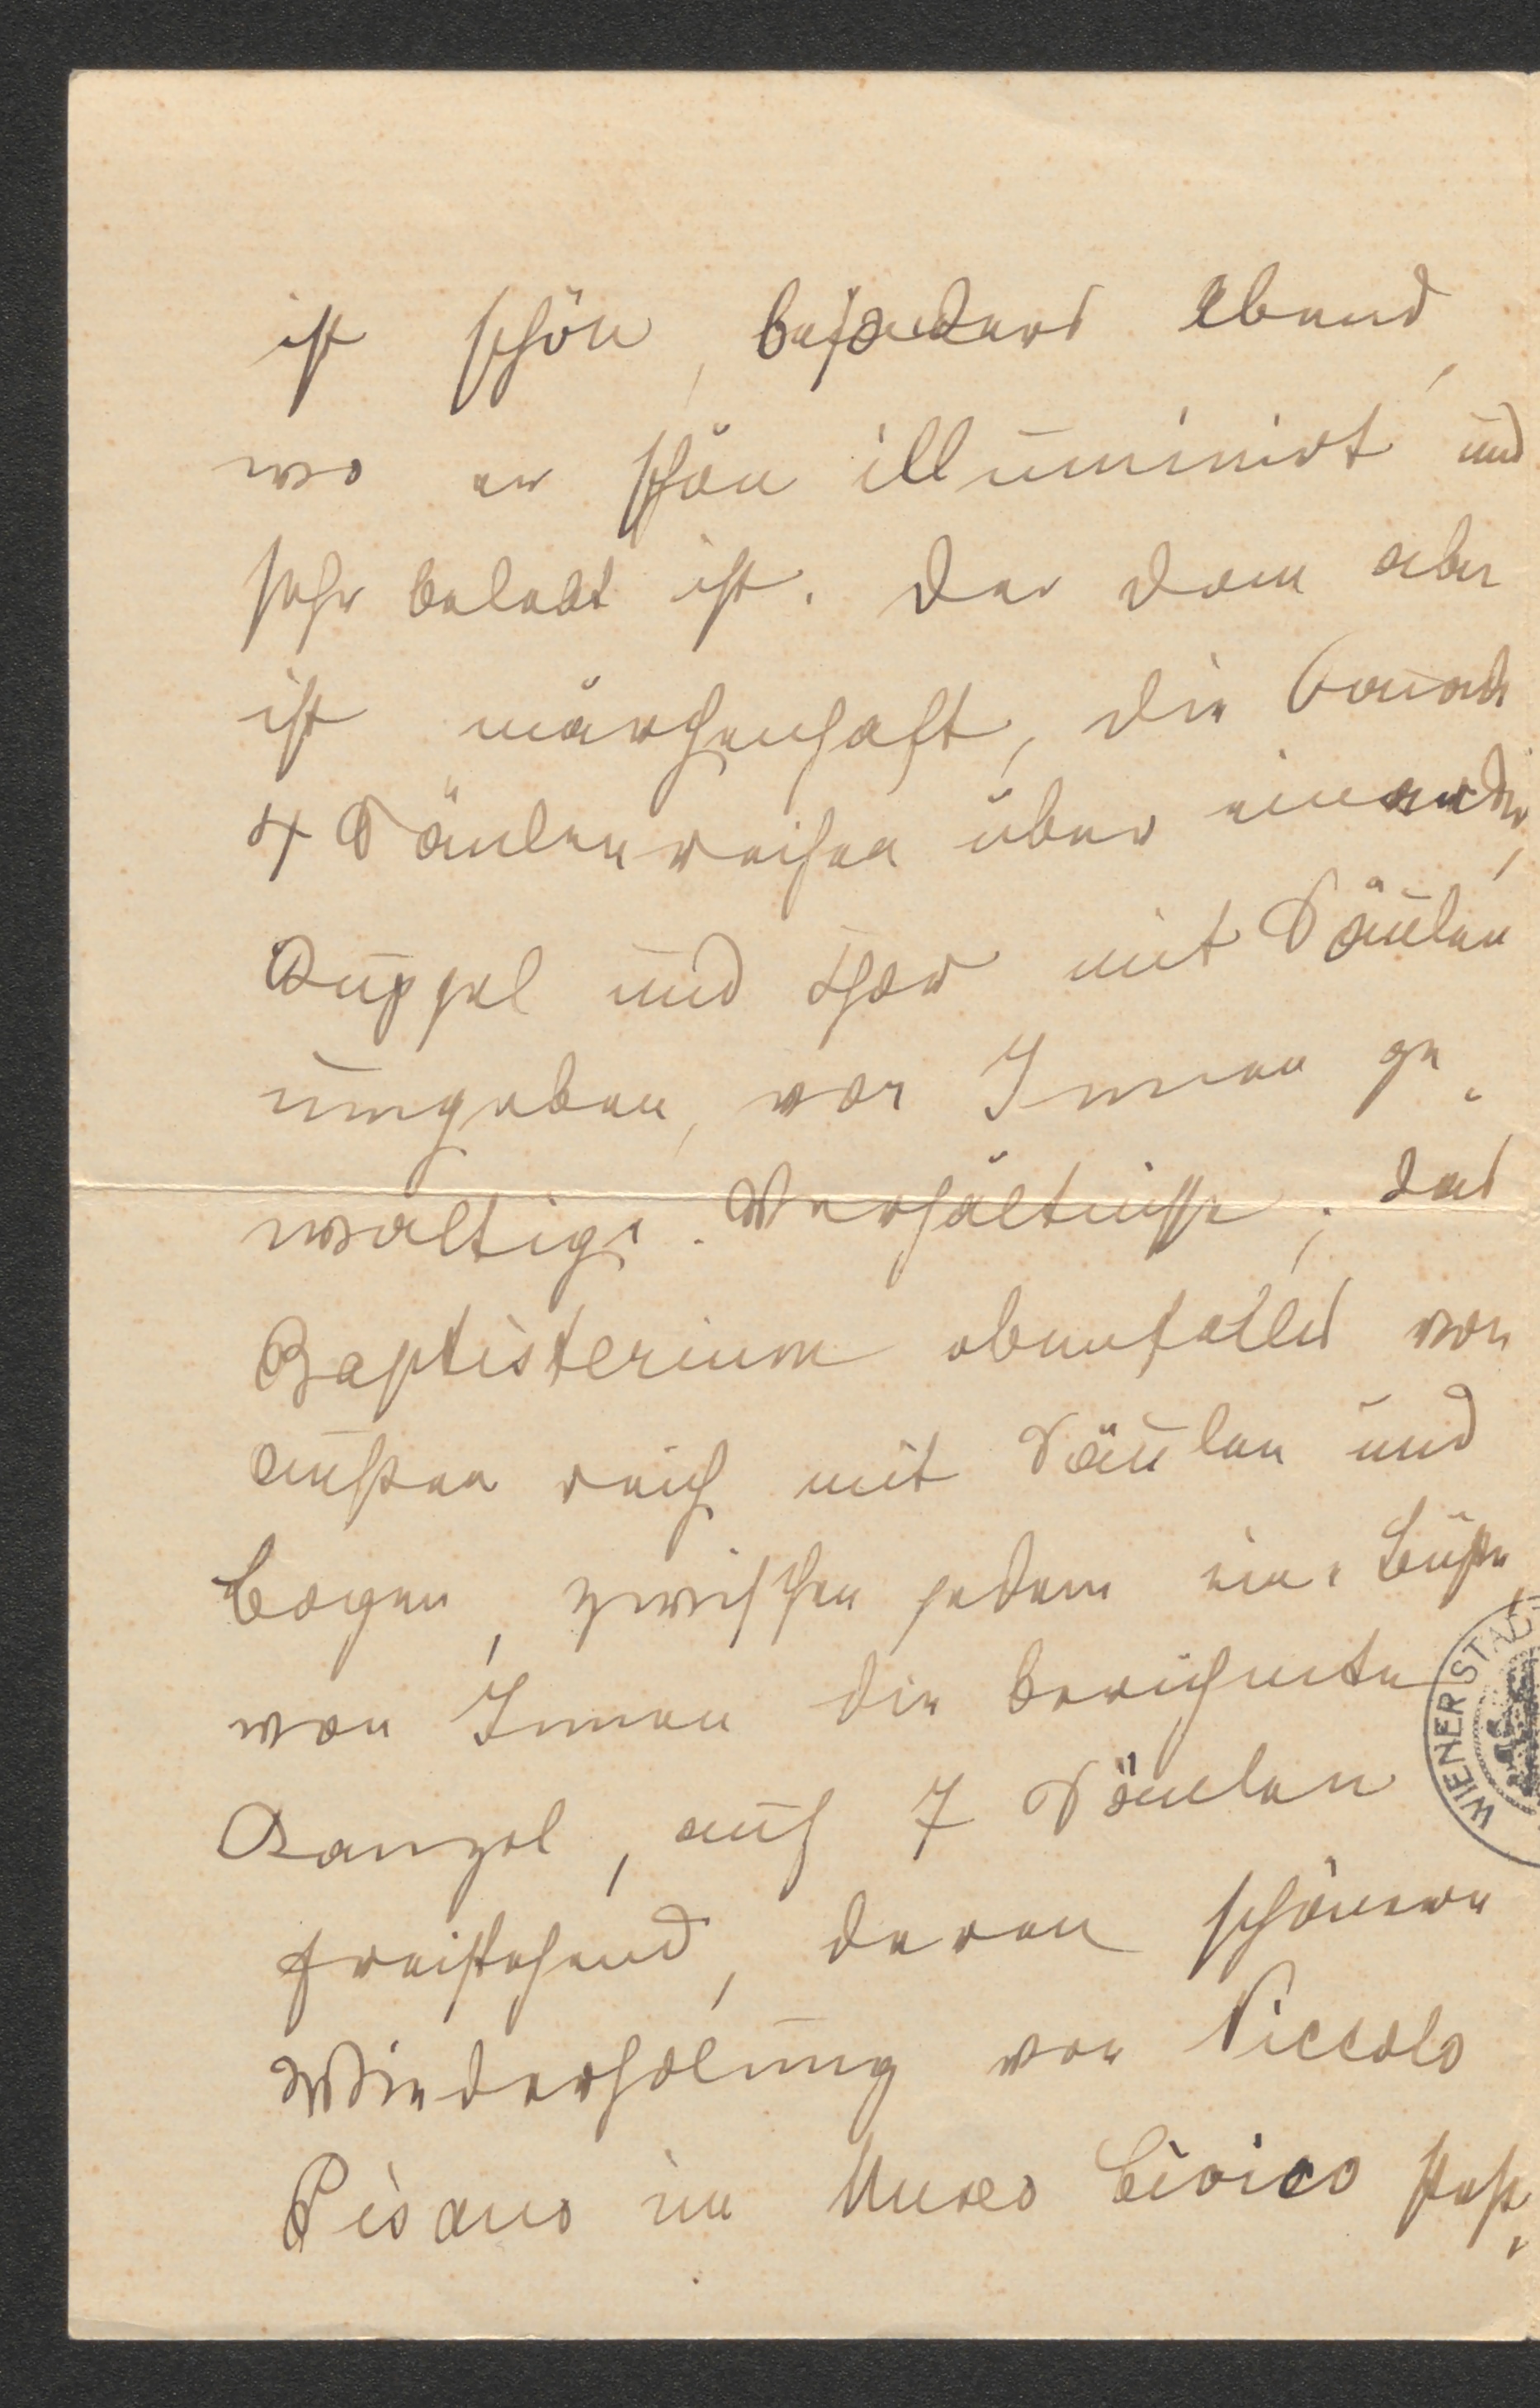 ist schön, besonders Abend,
wo er schön illuminirt und
sehr belebt ist. Der Dom aber
ist märchenhaft, die
4 Säulenreihen über einander,
Kuppel und Chor mit Säulen
umgeben, von Innen ge-
waltige Verhältnisse; das
Baptisterium ebenfalls von
außen reich mit Säulen und
Bogen, zwischen jedem eine Büste
von Innen die berühmte
Kanzel, auf 7 Säulen
freistehend, deren schönere
Wiederholung von Niccolo
Pisano im Museo Civico steht,
WIENER STAD